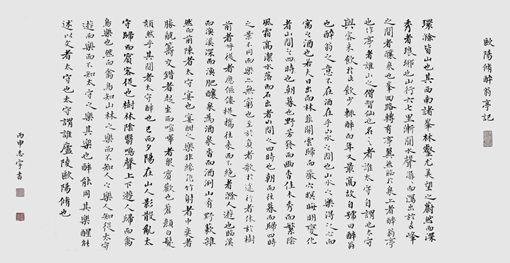 歐陽脩醉翁亭記
環滁皆山也其西南諸峯林壑尤美望之蔚然而深
秀者琅琊也山行六七里漸聞水聲潺潺而瀉出於兩峯
之間者釀泉也峯回路轉有亭翼然臨於泉上者醉翁亭
也作亭者誰山之僧智仙也名之者誰太守自謂也太守
與客來飲於此飲少輒醉而年又最高故自號曰醉翁
也醉翁之意不在酒在乎山水之間也山水之樂得之心而
寓之酒也若夫日出而林霏開雲歸而巖穴暝晦明變化
者山間之四時也朝暮也野芳發而幽香佳木秀而繁陰
風霜高潔水落而石出者山間之四時也朝而往暮而歸四時
之景不同而樂亦無窮也至於負者歌於途行者休於樹
前者呼後者應傴僂提攜往來而不絕者滁人遊也臨溪
而漁溪深而魚肥釀泉為酒泉香而酒洌山肴野蔌雜
然而前陳者太守宴也宴酣之樂非絲非竹射者中奕者
勝觥籌交錯者起坐而諠譁者衆賓歡也蒼顏白髮
頹然乎其間者太守醉也已而夕陽在山人影散亂太
守歸而賓客從也樹林陰翳鳴聲上下遊人歸而禽
鳥樂也然而禽鳥知山林之樂而不知人之樂人知從太守
遊而樂而不知太守之樂其樂也醉能同其樂醒能
述以文者太守也太守謂誰廬陵歐陽脩也
丙申志書